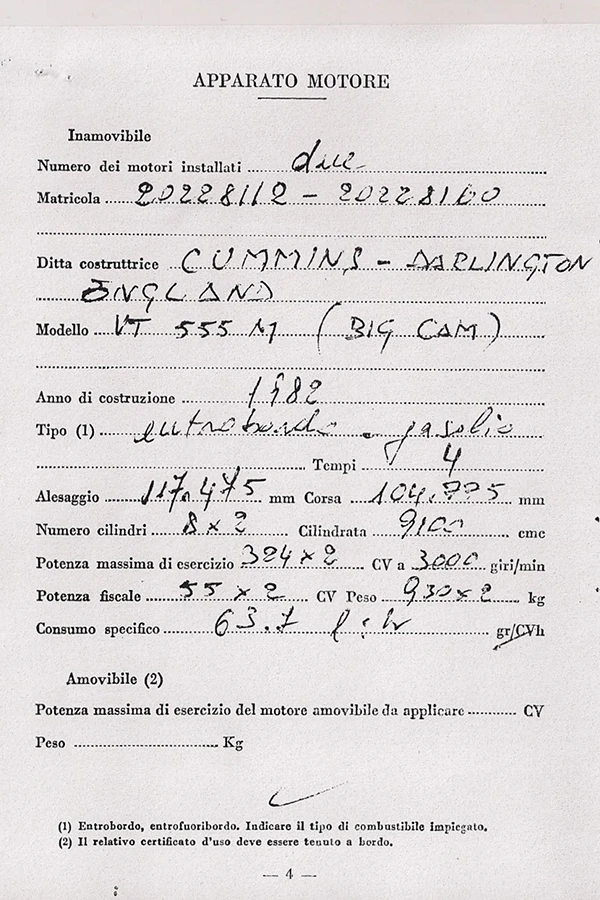 APPARATO MOTORE
Inamovibile
Numero dei motori installati due
Matricola 20228112 - 20228160
Ditta costruttrice CUMMINS - DARLINGTON
ENGLAND
Modello VT 555 M (BIG CAM)
Anno di costruzione 1982
Tipo (1) entrobordo a gasolio
Tempi 4
Alesaggio 117,475 mm Corsa 104,775 mm
Numero cilindri 8 x 2 Cilindrata 9100 cmc
Potenza massima di esercizio 324 x 2 CV a 3000 giri/min
Potenza fiscale 55 x 2 CV Peso 930 x 2 kg
Consumo specifico 63.7 gr/CVh
Amovibile (2)
Potenza massima di esercizio del motore amovibile da applicare CV
Peso Kg
(1) Entrobordo, entrofuoribordo. Indicare il tipo di combustibile impiegato.
(2) Il relativo certificato d'uso deve essere tenuto a bordo.
— 4 —